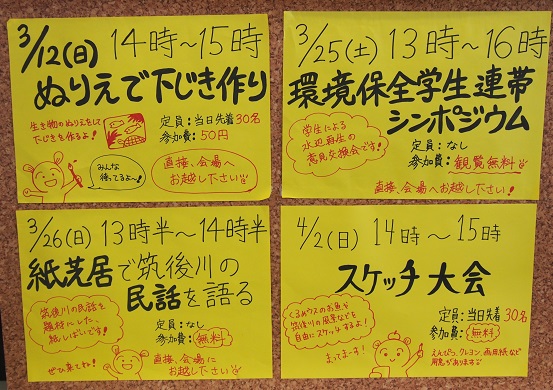 3/12(日) 14時～15時
ぬりえで下じき作り
生き物のぬりえをして
下じきを作るよ!
定員:当日先着30名
参加費:50円
みんな
待ってるよ～!
直接、会場へ
お越し下さい
3/25(土) 13時～16時
環境保全学生連帯
シンポジウム
学生による
水辺再生の
意見交換会です!
定員:なし
参加費:観覧無料
直接、会場へお越し下さい!
3/26(日) 13時半～14時半
紙芝居で筑後川の
民話を語る
筑後川の民話を
題材にした、
紙しばいです!
定員:なし
参加費:無料
ぜひ来てね!
直接、会場に
お越し下さい
4/2(日) 14時～15時
スケッチ大会
くるめウスのお魚や
筑後川の風景などを
自由にスケッチするよ!
定員:当日先着30名
参加費:無料
まってまーす!
えんぴつ、クレヨン、画用紙など
用意があります